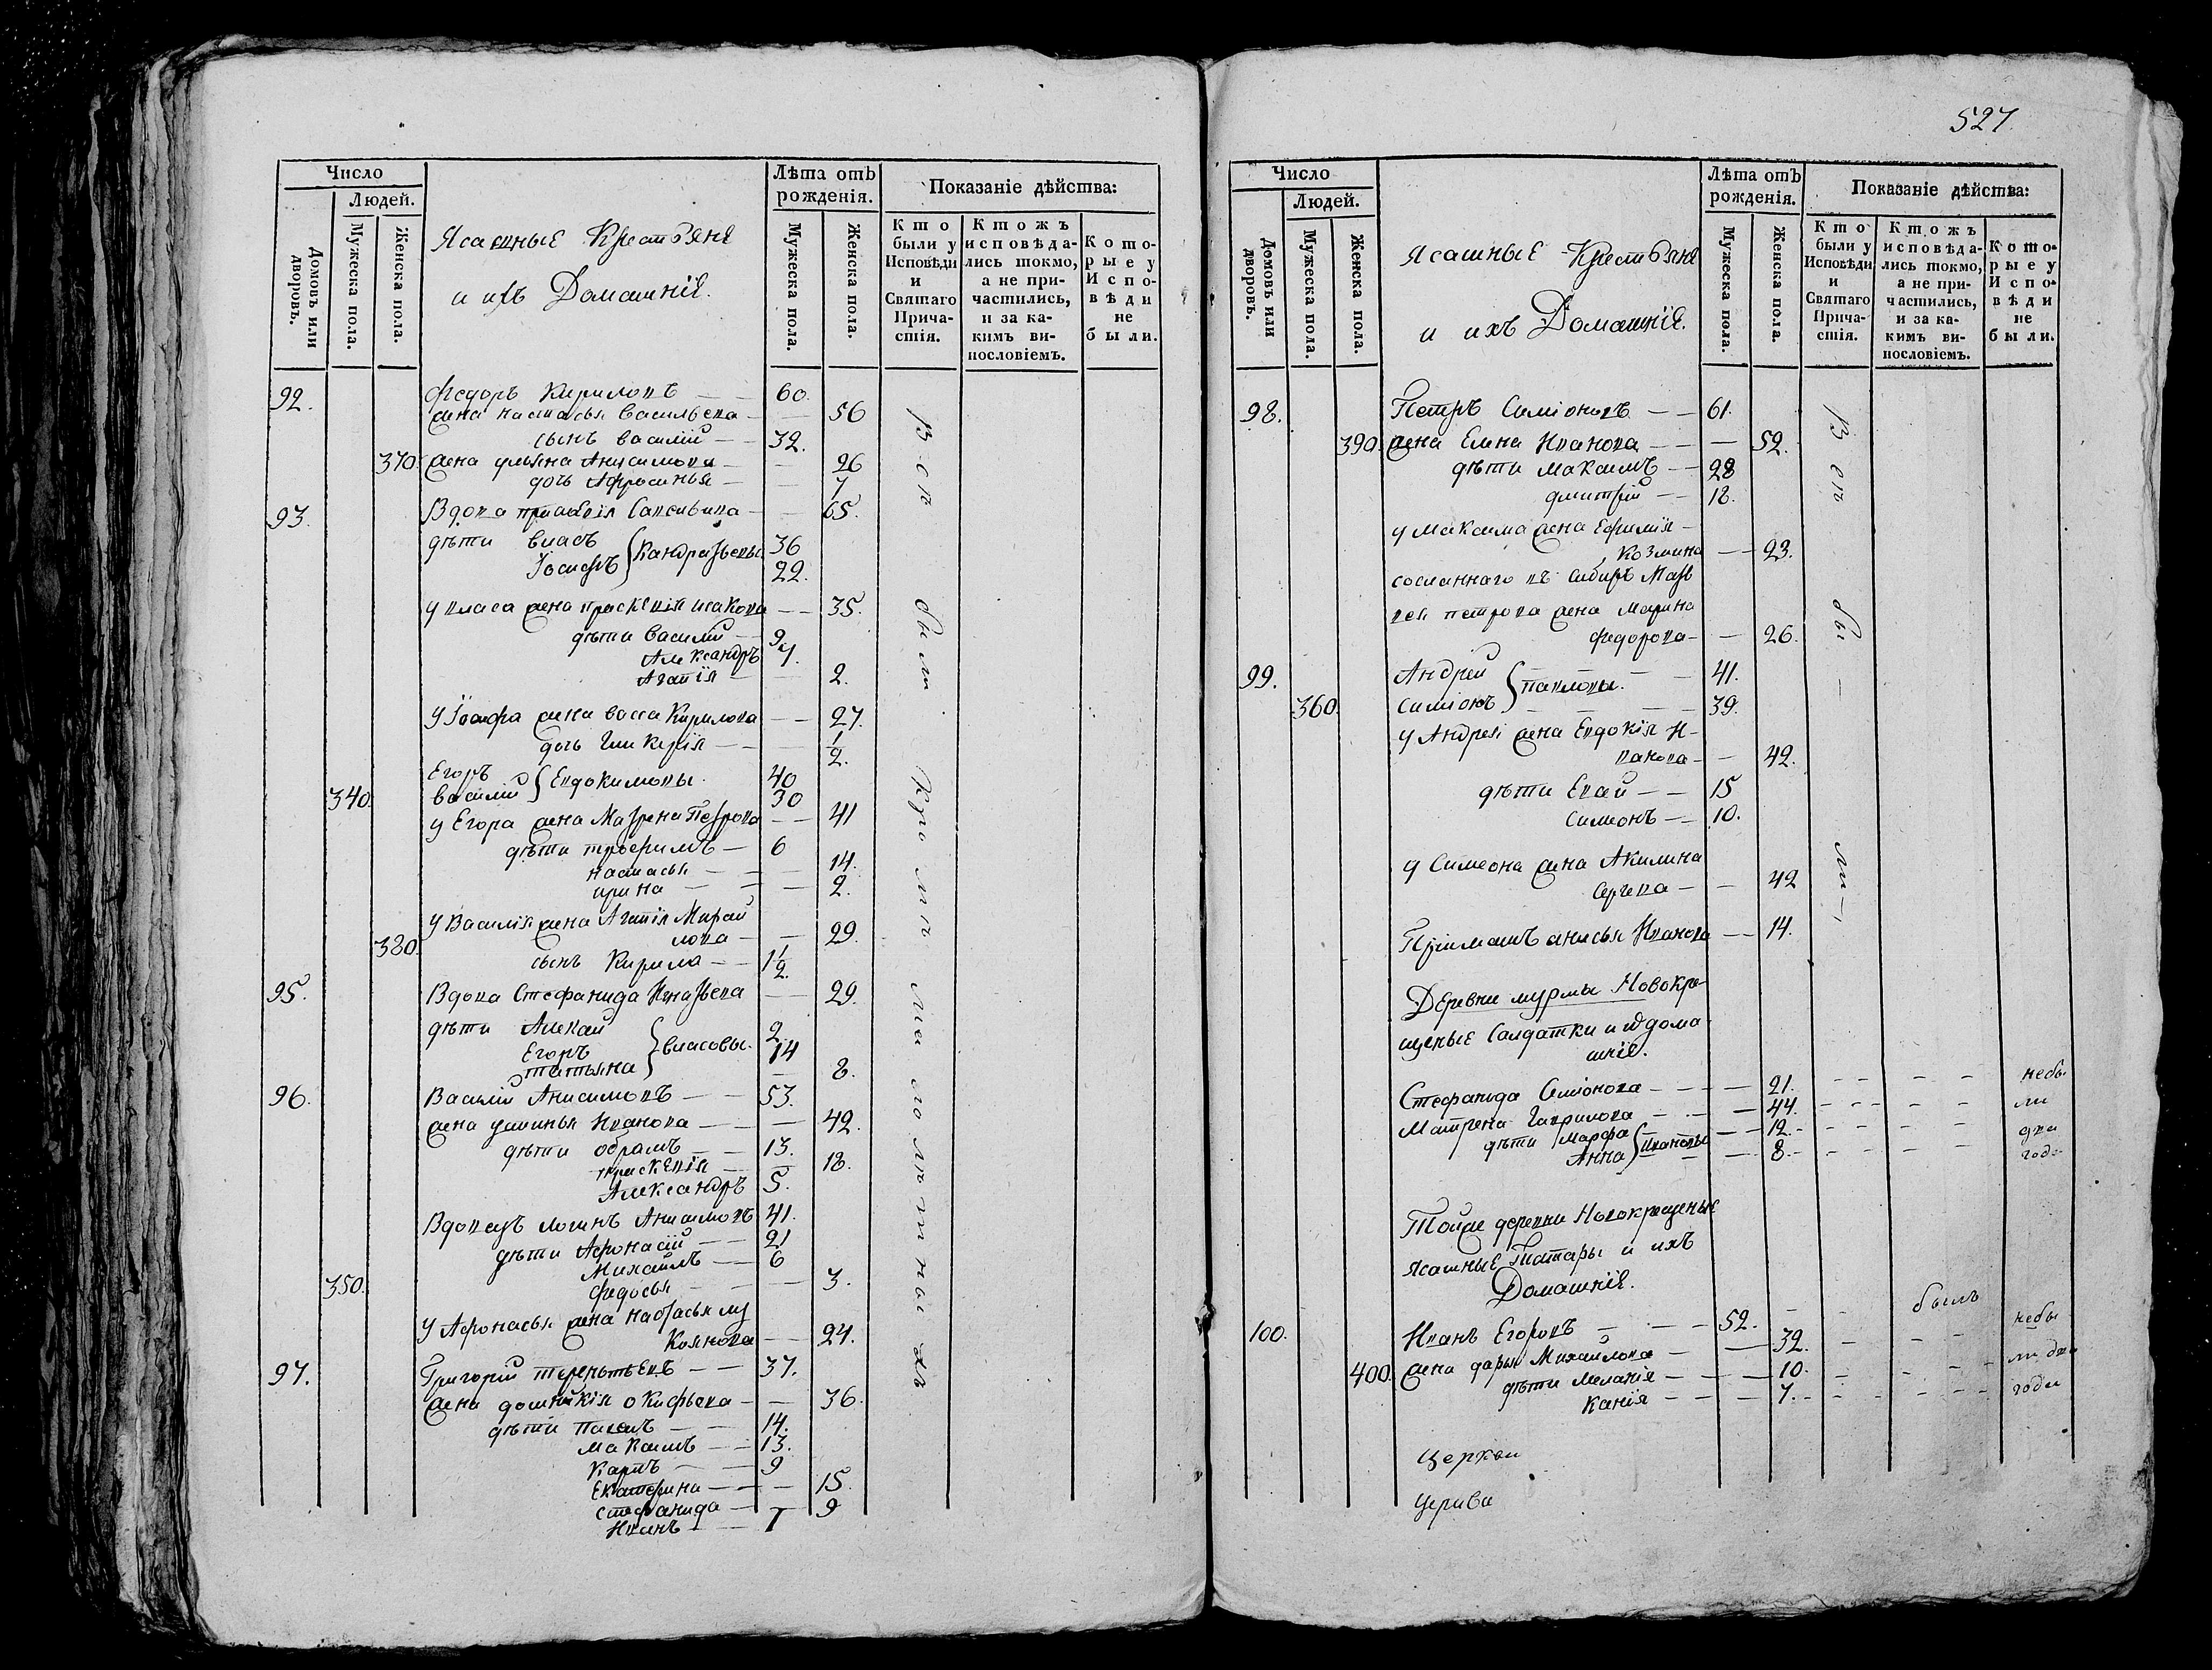 Число
Людей.
Домовъ или дворовъ.
Мужеска пола.
Женска пола.
Ясашные Крестьяне
и ихъ Домашніе.
Лѣта отъ рожденія.
Мужеска пола.
Женска пола.
Показаніе дѣйства:
Кто были у Исповѣди и Святаго Причастія.
Ктожъ исповѣдались токмо, а не причастились, и за какимъ винословіемъ.
Которые у Исповѣди не были.
92. Федоръ Кириловъ — 60.
жена настасья васильева — 56
сынъ василий — 32.
370. жена ульяна Анисимова — 26
дочь Афросинья — 7
93. Вдова — 65.
дѣти власъ 36
Іосифъ } Кандратьевы 22.
у власа жена прасковія исакова — 35.
дѣти василий — 9
Александръ 7.
Агапія — 2.
у Іосифа жена васса Кирилова — 27.
дочь Гликерія — 1/2.
Егоръ 40
340. василий } Евдокимовы. 30
у Егора жена Матрена Петрова — 41
дѣти трофимъ — 6
настасья — 14.
ирина — 2.
у Василья жена Агапія Михай
380. лова — 29.
сынъ Кирила — 1 1/2.
95. Вдова Стефанида Игнатьева — 29.
дѣти Алексай 2
Егоръ } власовы. 14
татьяна 8.
96. Василий Анисимовъ — 53.
жена улинья Иванова — 42.
дѣти обрамъ — 13.
прасковія — 18.
Александръ 5.
Вдовецъ логинъ Анисимовъ 41.
дѣти Афонасій — 21
Михаилъ — 6
350. федосья — 3.
у Афонасья жена настасья лу
коянова — 24.
97. Григорій терентьевъ — 37.
жена окифьева — 36.
дѣти павелъ — 14.
максимъ — 13.
карпъ — 9
Екатерина — 15.
стефанида — 9
Иванъ — 1
Вси были
527.
Число
Людей.
Домовъ или дворовъ.
Мужеска пола.
Женска пола.
Ясашные Крестьяне
и ихъ Домашніе.
Лѣта отъ рожденія.
Мужеска пола.
Женска пола.
Показаніе дѣйства:
Кто были у Исповѣди и Святаго Причастія.
Ктожъ исповѣдались токмо, а не причастились, и за какимъ винословіемъ.
Которые у Исповѣди не были.
98. Петръ Симіоновъ — 61.
390. жена Елена Иванова — 52.
дѣти максимъ — 28
дмитрій — 18.
у максима жена Ефимія —
козмина — 23.
сосланнаго въ сибирь Мат
вея петрова жена марина
федорова — 26.
99. Андрей — 41.
360. симіонъ } павловы. — 39.
у Андрея жена Евдокія И-
ванова — 42.
дѣти — 15
симеонъ — 10.
у симеона жена Акилина
сергева — 42
анисья Иванова — 14.
Деревни мурмы Новокре-
щеные Салдатки и ихъ дома
шніе.
Стефанида Симіонова — 21. небы
матрена Гаврилова — 44. ли
дѣти марфа — 12. два
Анна } Ивановы — 8. года
Тойже деревни Новокрещеные
ясашные Татары и ихъ
Домашніе.
100. Иванъ Егоровъ — 52. былъ
400. жена дарья михайлова — 32. небы
дѣти меланія — 10. ли два
ксенія — 7. года
Вси были
церкви
церкви